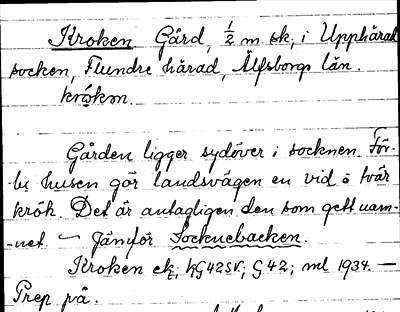 Kroken Gård, 1/2 m. sk, i Upphärad
socken, Flundre härad, Älfsborgs län.
krókm.
Gården ligger sydöver i socknen. För-
bi husen gör landsvägen en vid o tvär
krök. Det är antagligen den som gett nam-
-net. — Jämför Socknebacken.
Kroken ek; G 42; ml 1934. —
Prep på.